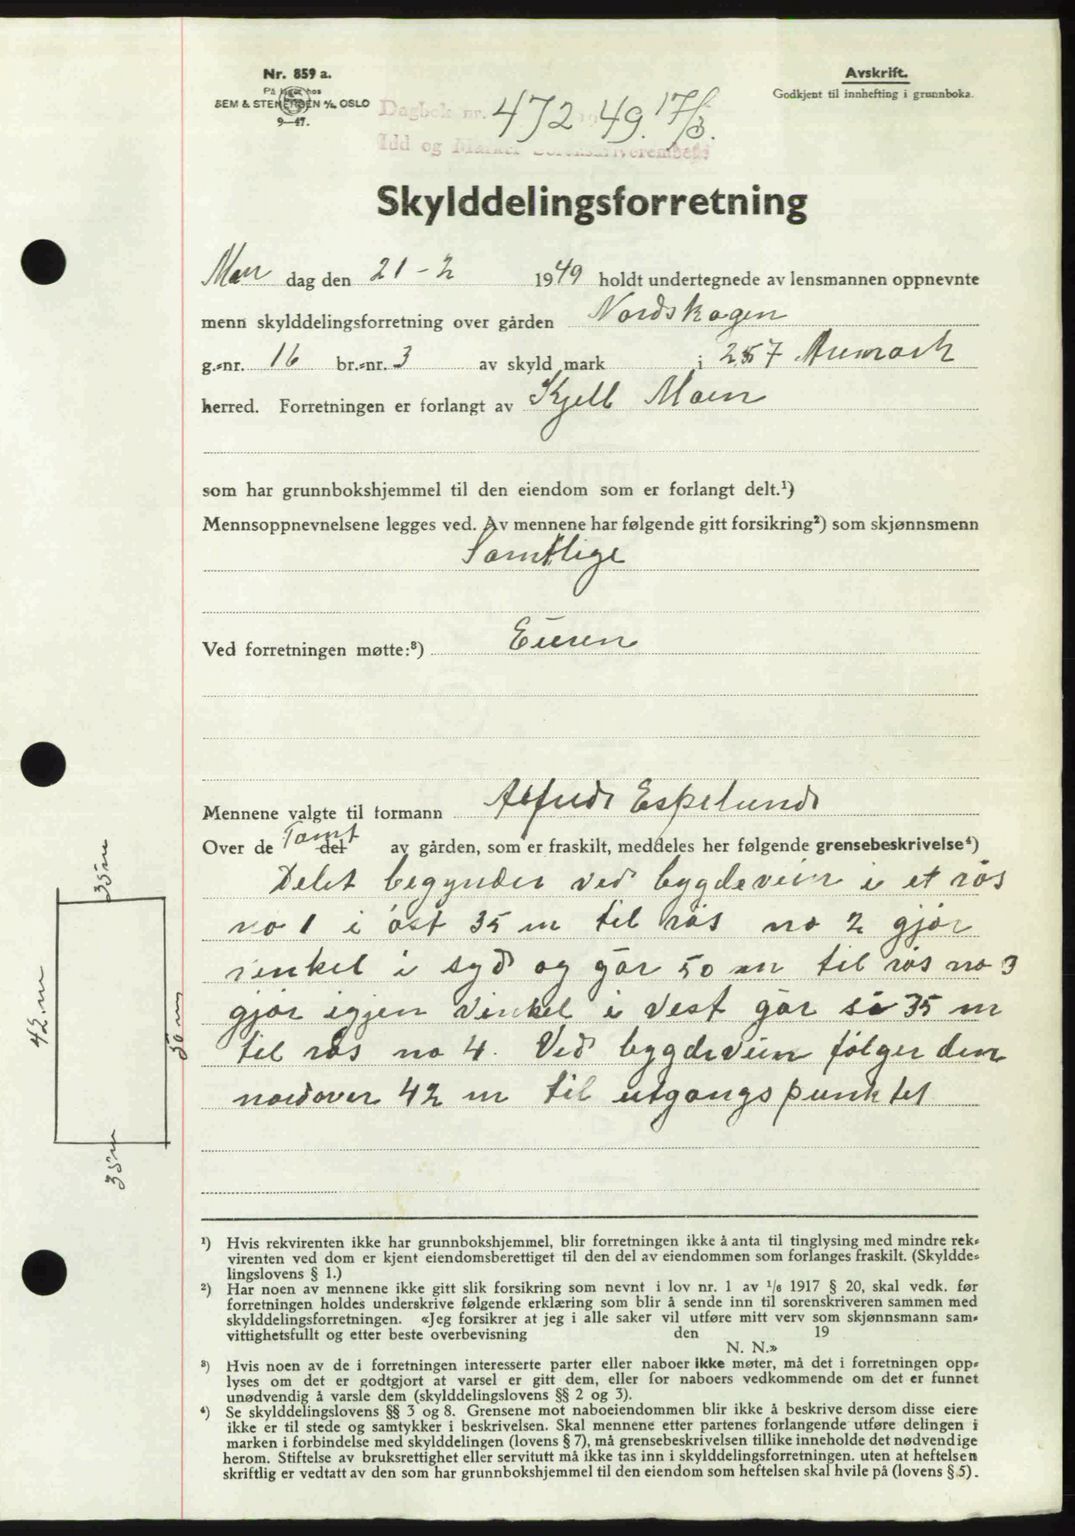 Nr. 859 a.
På lager hos
SEM & STENERSEN A/S, OSLO
9—47.
Avskrift.
Godkjent til innhefting i grunnboka.
Dagbok nr. 472 49. 17/3.
Idd og Marker Sorenskriverembede
Skylddelingsforretning
Man dag den 21-2 1949 holdt undertegnede av lensmannen oppnevnte
menn skylddelingsforretning over gården Nordskogen
g.-nr. 16 br.-nr. 3 av skyld mark i 2,57 Aremark
herred. Forretningen er forlangt av Kjell Moen
som har grunnbokshjemmel til den eiendom som er forlangt delt.¹)
Mennsoppnevnelsene legges ved. Av mennene har følgende gitt forsikring²) som skjønnsmenn
Samtlige
Ved forretningen møtte:³) Eieren
Mennene valgte til formann Alfred Espelund
Over de Tomt det av gården, som er fraskilt, meddeles her følgende grensebeskrivelse⁴)
Delet begynder ved bygdeveien i et røs
no 1 i øst 35 m til røs no 2 gjør
vinkel i syd og går 50 m til røs no 3
gjør igjen vinkel i vest går så 35 m
til røs no 4. Ved bygdeveien følger den
nordover 42 m til utgangspunktet
35 m
42 m
50 m
35 m
¹) Hvis rekvirenten ikke har grunnbokshjemmel, blir forretningen ikke å anta til tinglysing med mindre rek-
virenten ved dom er kjent eiendomsberettiget til den del av eiendommen som forlanges fraskilt. (Skyldde-
lingslovens § 1.)
²) Har noen av mennene ikke gitt slik forsikring som nevnt i lov nr. 1 av 1/6 1917 § 20, skal vedk. før
forretningen holdes underskrive følgende erklæring som blir å sende inn til sorenskriveren sammen med
skylddelingsforretningen. «Jeg forsikrer at jeg i alle saker vil utføre mitt verv som skjønnsmann sam-
vittighetsfullt og etter beste overbevisning den 19
N. N.»
³) Hvis noen av de i forretningen interesserte parter eller naboer ikke møter, må det i forretningen opp-
lyses om det er godtgjort at varsel er gitt dem, eller for naboers vedkommende om det er funnet
unødvendig å varsle dem (skylddelingslovens §§ 2 og 3).
⁴) Se skylddelingslovens §§ 3 og 8. Grensene mot naboeiendommen blir ikke å beskrive dersom disse eiere
ikke er til stede og samtykker i beskrivelsen. Skal mennene etter partenes forlangende utføre delingen i
marken i forbindelse med skylddelingen (lovens § 7), må grensebeskrivelsen tillike inneholde det nødvendige
herom. Stiftelse av bruksrettighet eller servitutt må ikke tas inn i skylddelingsforretningen, uten at heftelsen
skriftlig er vedtatt av den som har grunnbokshjemmel til den eiendom som heftelsen skal hvile på (lovens § 5).